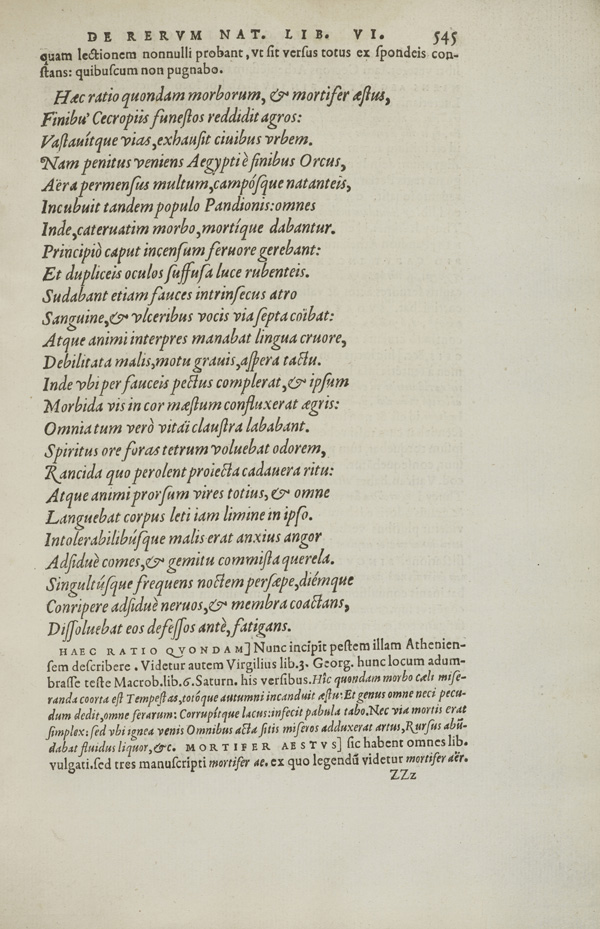 DE RERVM NAT. LIB. VI. 545
quam lectionem nonnulli probant, vt sit versus totus ex spondeis con-
stans: quibuscum non pugnabo.
Hæc ratio quondam morborum, & mortifer æstus,
Finibu' Cecropiis funestos reddidit agros:
Vastauítque vias, exhausit ciuibus vrbem.
Nam penitus veniens Aegypti è finibus Orcus,
Aëra permensus multum, campósque natanteis,
Incubuit tandem populo Pandionis: omnes
Inde, cateruatim morbo, mortíque dabantur.
Principiò caput incensum feruore gerebant:
Et dupliceis oculos suffusa luce rubenteis.
Sudabant etiam fauces intrinsecus atro
Sanguine, & vlceribus vocis via septa coïbat:
Atque animi interpres manabat lingua cruore,
Debilitata malis, motu grauis, aspera tactu.
Inde vbi per fauceis pectus complerat, & ipsum
Morbida vis in cor mæstum confluxerat ægris:
Omnia tum verò vitaï claustra lababant.
Spiritus ore foras tetrum voluebat odorem,
Rancida quo perolent proiecta cadauera ritu:
Atque animi prorsum vires totius, & omne
Languebat corpus leti iam limine in ipso.
Intolerabilibúsque malis erat anxius angor
Adsiduè comes, & gemitu commista querela.
Singultúsque frequens noctem persæpe, diémque
Conripere adsiduè neruos, & membra coactans,
Dissoluebat eos defessos antè, fatigans.
HAEC RATIO QVONDAM] Nunc incipit pestem illam Athenien-
sem describere. Videtur autem Virgilius lib.3. Georg. hunc locum adum-
brasse teste Macrob.lib.6.Saturn. his versibus. Hîc quondam morbo cæli mise-
randa coorta est Tempestas, totóque autumni incanduit æstu: Et genus omne neci pecu-
dum dedit, omne ferarum: Corrupítque lacus: infecit pabula tabo. Nec via mortis erat
simplex: sed vbi ignea venis Omnibus acta sitis miseros adduxerat artus, Rursus abū-
dabat fluidus liquor, &c. MORTIFER AESTVS] sic habent omnes lib.
vulgati. sed tres manuscripti mortifer ae. ex quo legendū videtur mortifer aër.
ZZz